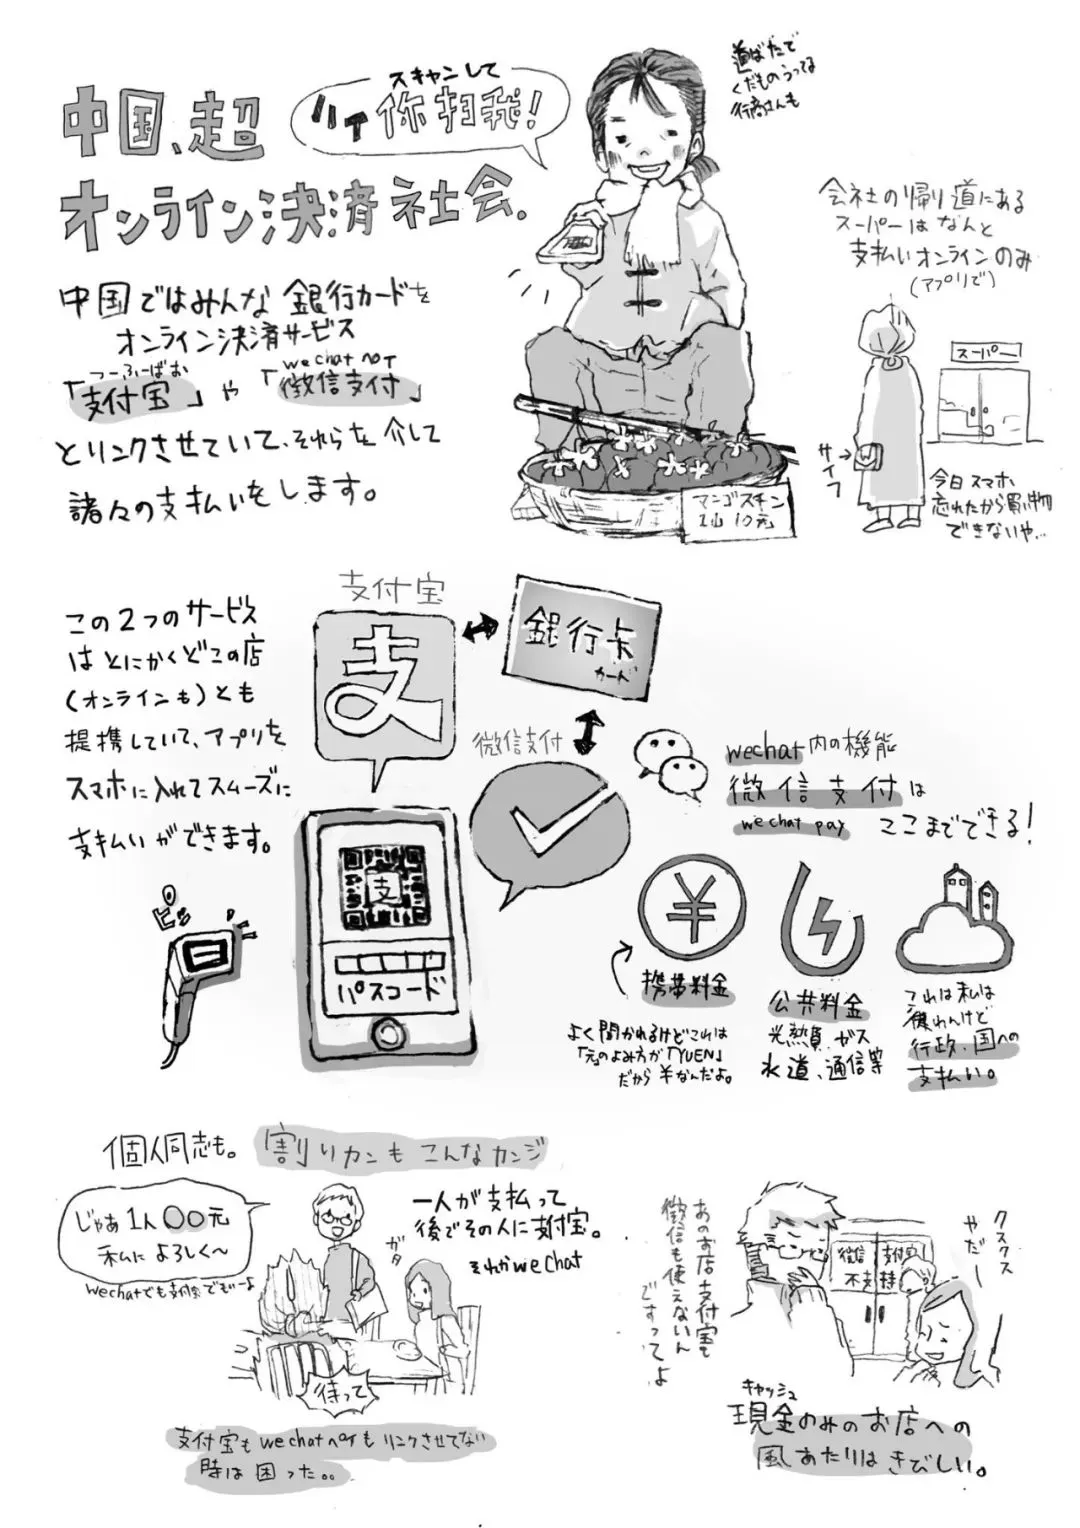 中国、超
オンライン決済社会.
スキャンして
ハイ 你扫我!
道ばたで
くだものうってる
行商さんも
会社の帰り道にある
スーパーはなんと
支払いオンラインのみ
(アプリで)
スーパー
サイフ
今日スマホ
忘れたから買い物
できないや...
中国ではみんな銀行カードを
オンライン決済サービス
つーふーばお
wechatペイ
「支付宝」や「微信支付」
とリンクさせていて、それらを介して
諸々の支払いをします。
マンゴスチン
1山10元
この2つのサービス
はとにかくどこの店
(オンラインも)とも
提携していて、アプリを
スマホに入れてスムーズに
支払いができます。
支付宝
支
銀行卡
カード
微信支付
wechat内の機能
微信支付は
wechat pay ここまでできる!
ピッ
支
パスコード
¥
携帯料金
よく聞かれるけどこれは
「元」のよみ方が「YUEN」
だから¥なんだよ。
公共料金
光熱費、ガス
水道、通信等
これは私は
使わんけど
行政、国への
支払い。
個人同志も。 割りカンもこんなカンジ
じゃあ1人〇〇元
私によろしく〜
wechatでも支付宝でもいーよ
一人が支払って
後でその人に支付宝。
それかwechat
ガタ
待って
支付宝もwechatペイもリンクさせてない
時は困った。。
あのお店支付宝も
微信も使えないん
ですってよ
微信 支付宝
不支持
クスクス
やだー
キャッシュ
現金のみのお店への
風あたりはきびしい。